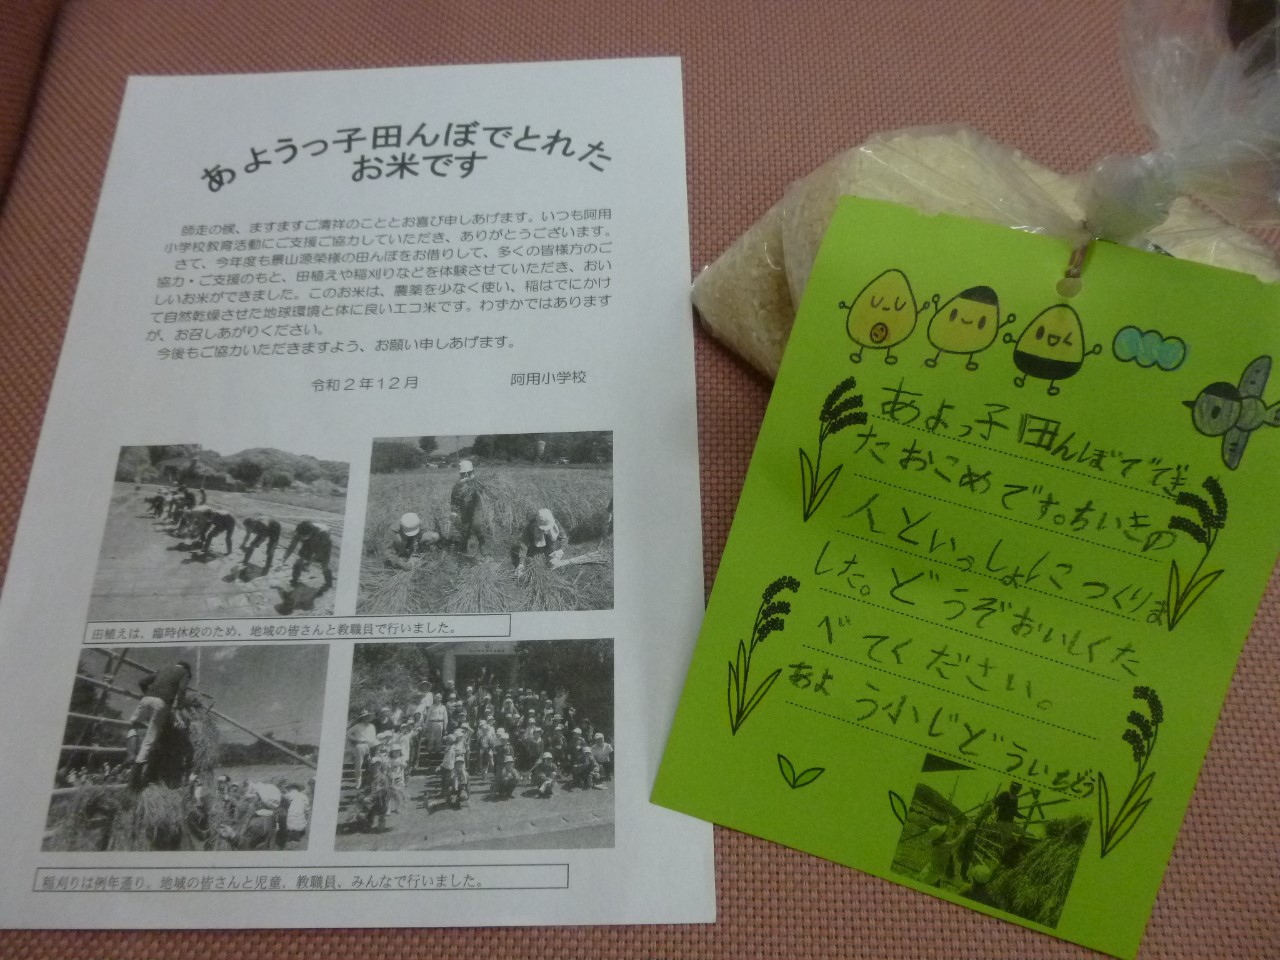 あようっ子田んぼでとれた
お米です
師走の候、ますますご清祥のこととお喜び申しあげます。いつも阿用
小学校教育活動にご支援ご協力していただき、ありがとうございます。
さて、今年度も景山源栄様の田んぼをお借りして、多くの皆様方のご
協力・ご支援のもと、田植えや稲刈りなどを体験させていただき、おい
しいお米ができました。このお米は、農薬を少なく使い、稲はでにかけ
て自然乾燥させた地球環境と体に良いエコ米です。わずかではあります
が、お召しあがりください。
今後もご協力いただきますよう、お願い申しあげます。
令和２年１２月 阿用小学校
田植えは、臨時休校のため、地域の皆さんと教職員で行いました。
稲刈りは例年通り、地域の皆さんと児童、教職員、みんなで行いました。
あよっ子田んぼででき
たおこめです。ちいきの
人といっしょにつくりま
した。どうぞおいしくた
べてください。
あよう小じどういちどう